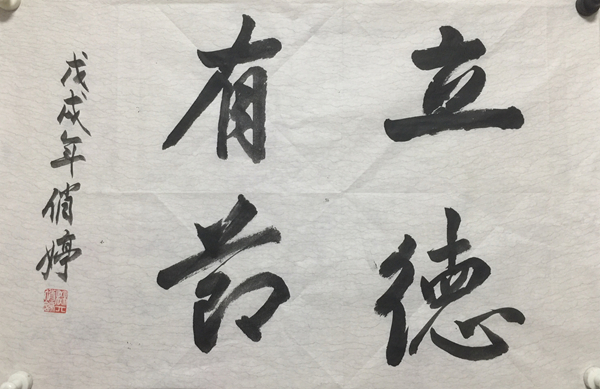 立德
有节
戊戌年俏婷